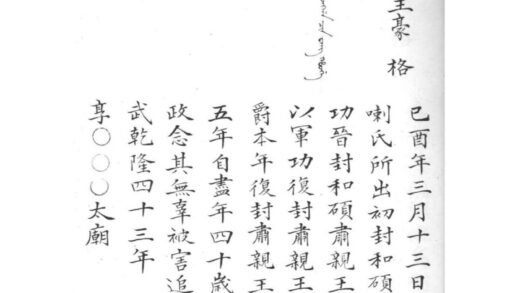 王豪格
己酉年三月十三日
喇氏所出初封和碩
功晉封和碩肅親王
以軍功復封肅親王
爵本年復封肅親王
五年自盡年四十歲
政念其無辜被害追
武乾隆四十三年
享○○○太廟